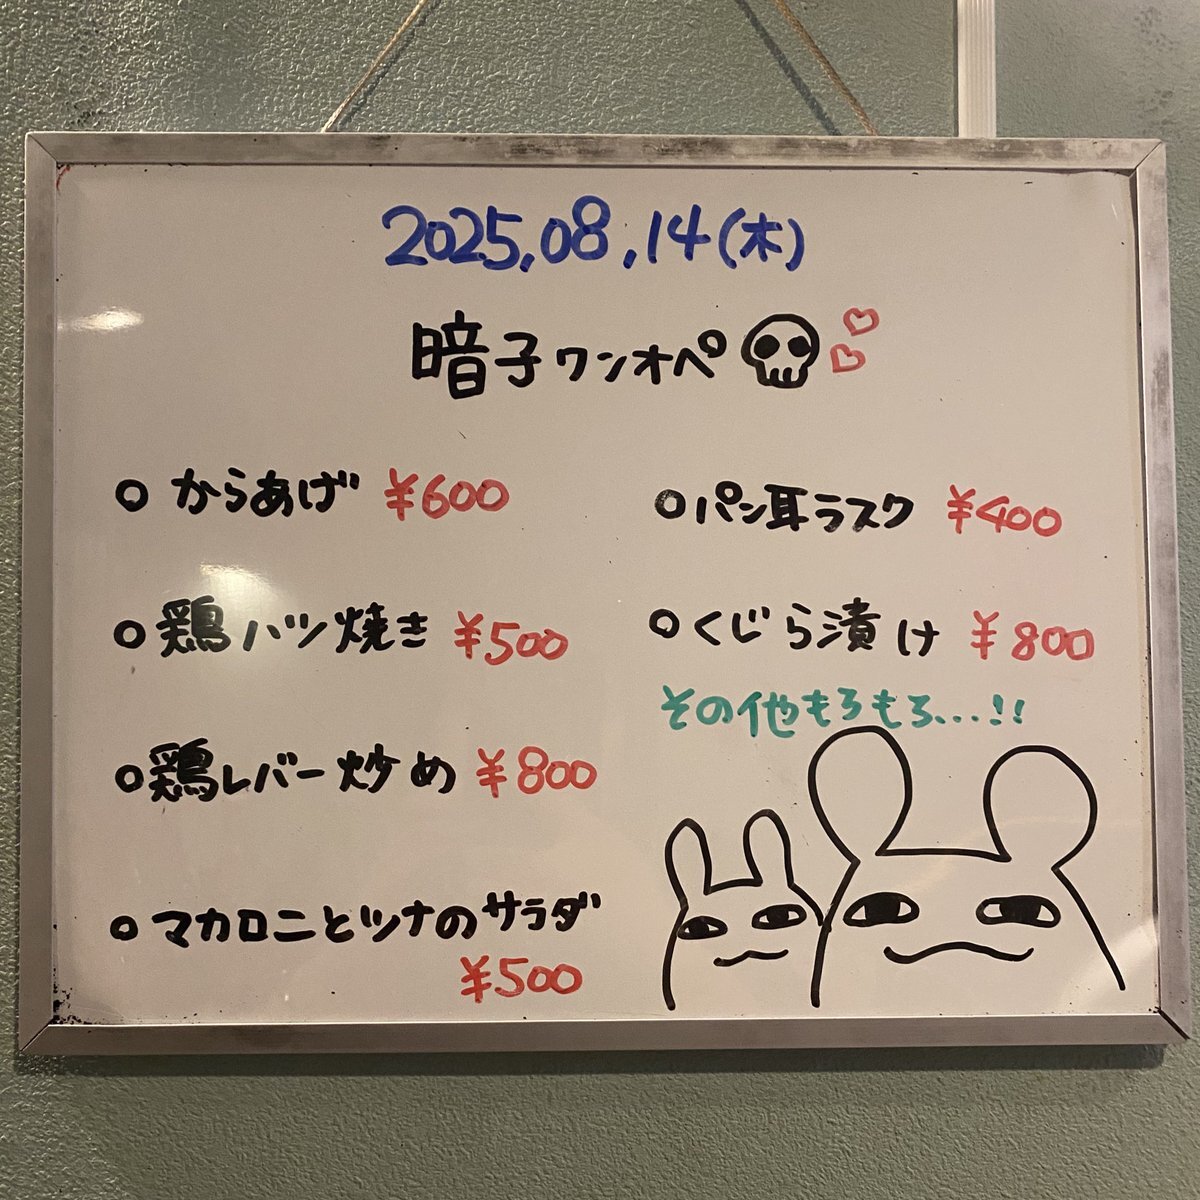 2025.08.14(木)
暗子ワンオペ
○ からあげ ¥600
○ 鶏ハツ焼き ¥500
○ 鶏レバー炒め ¥800
○ マカロニとツナのサラダ
¥500
○ パン耳ラスク ¥400
○ くじら漬け ¥800
その他もろもろ...!!